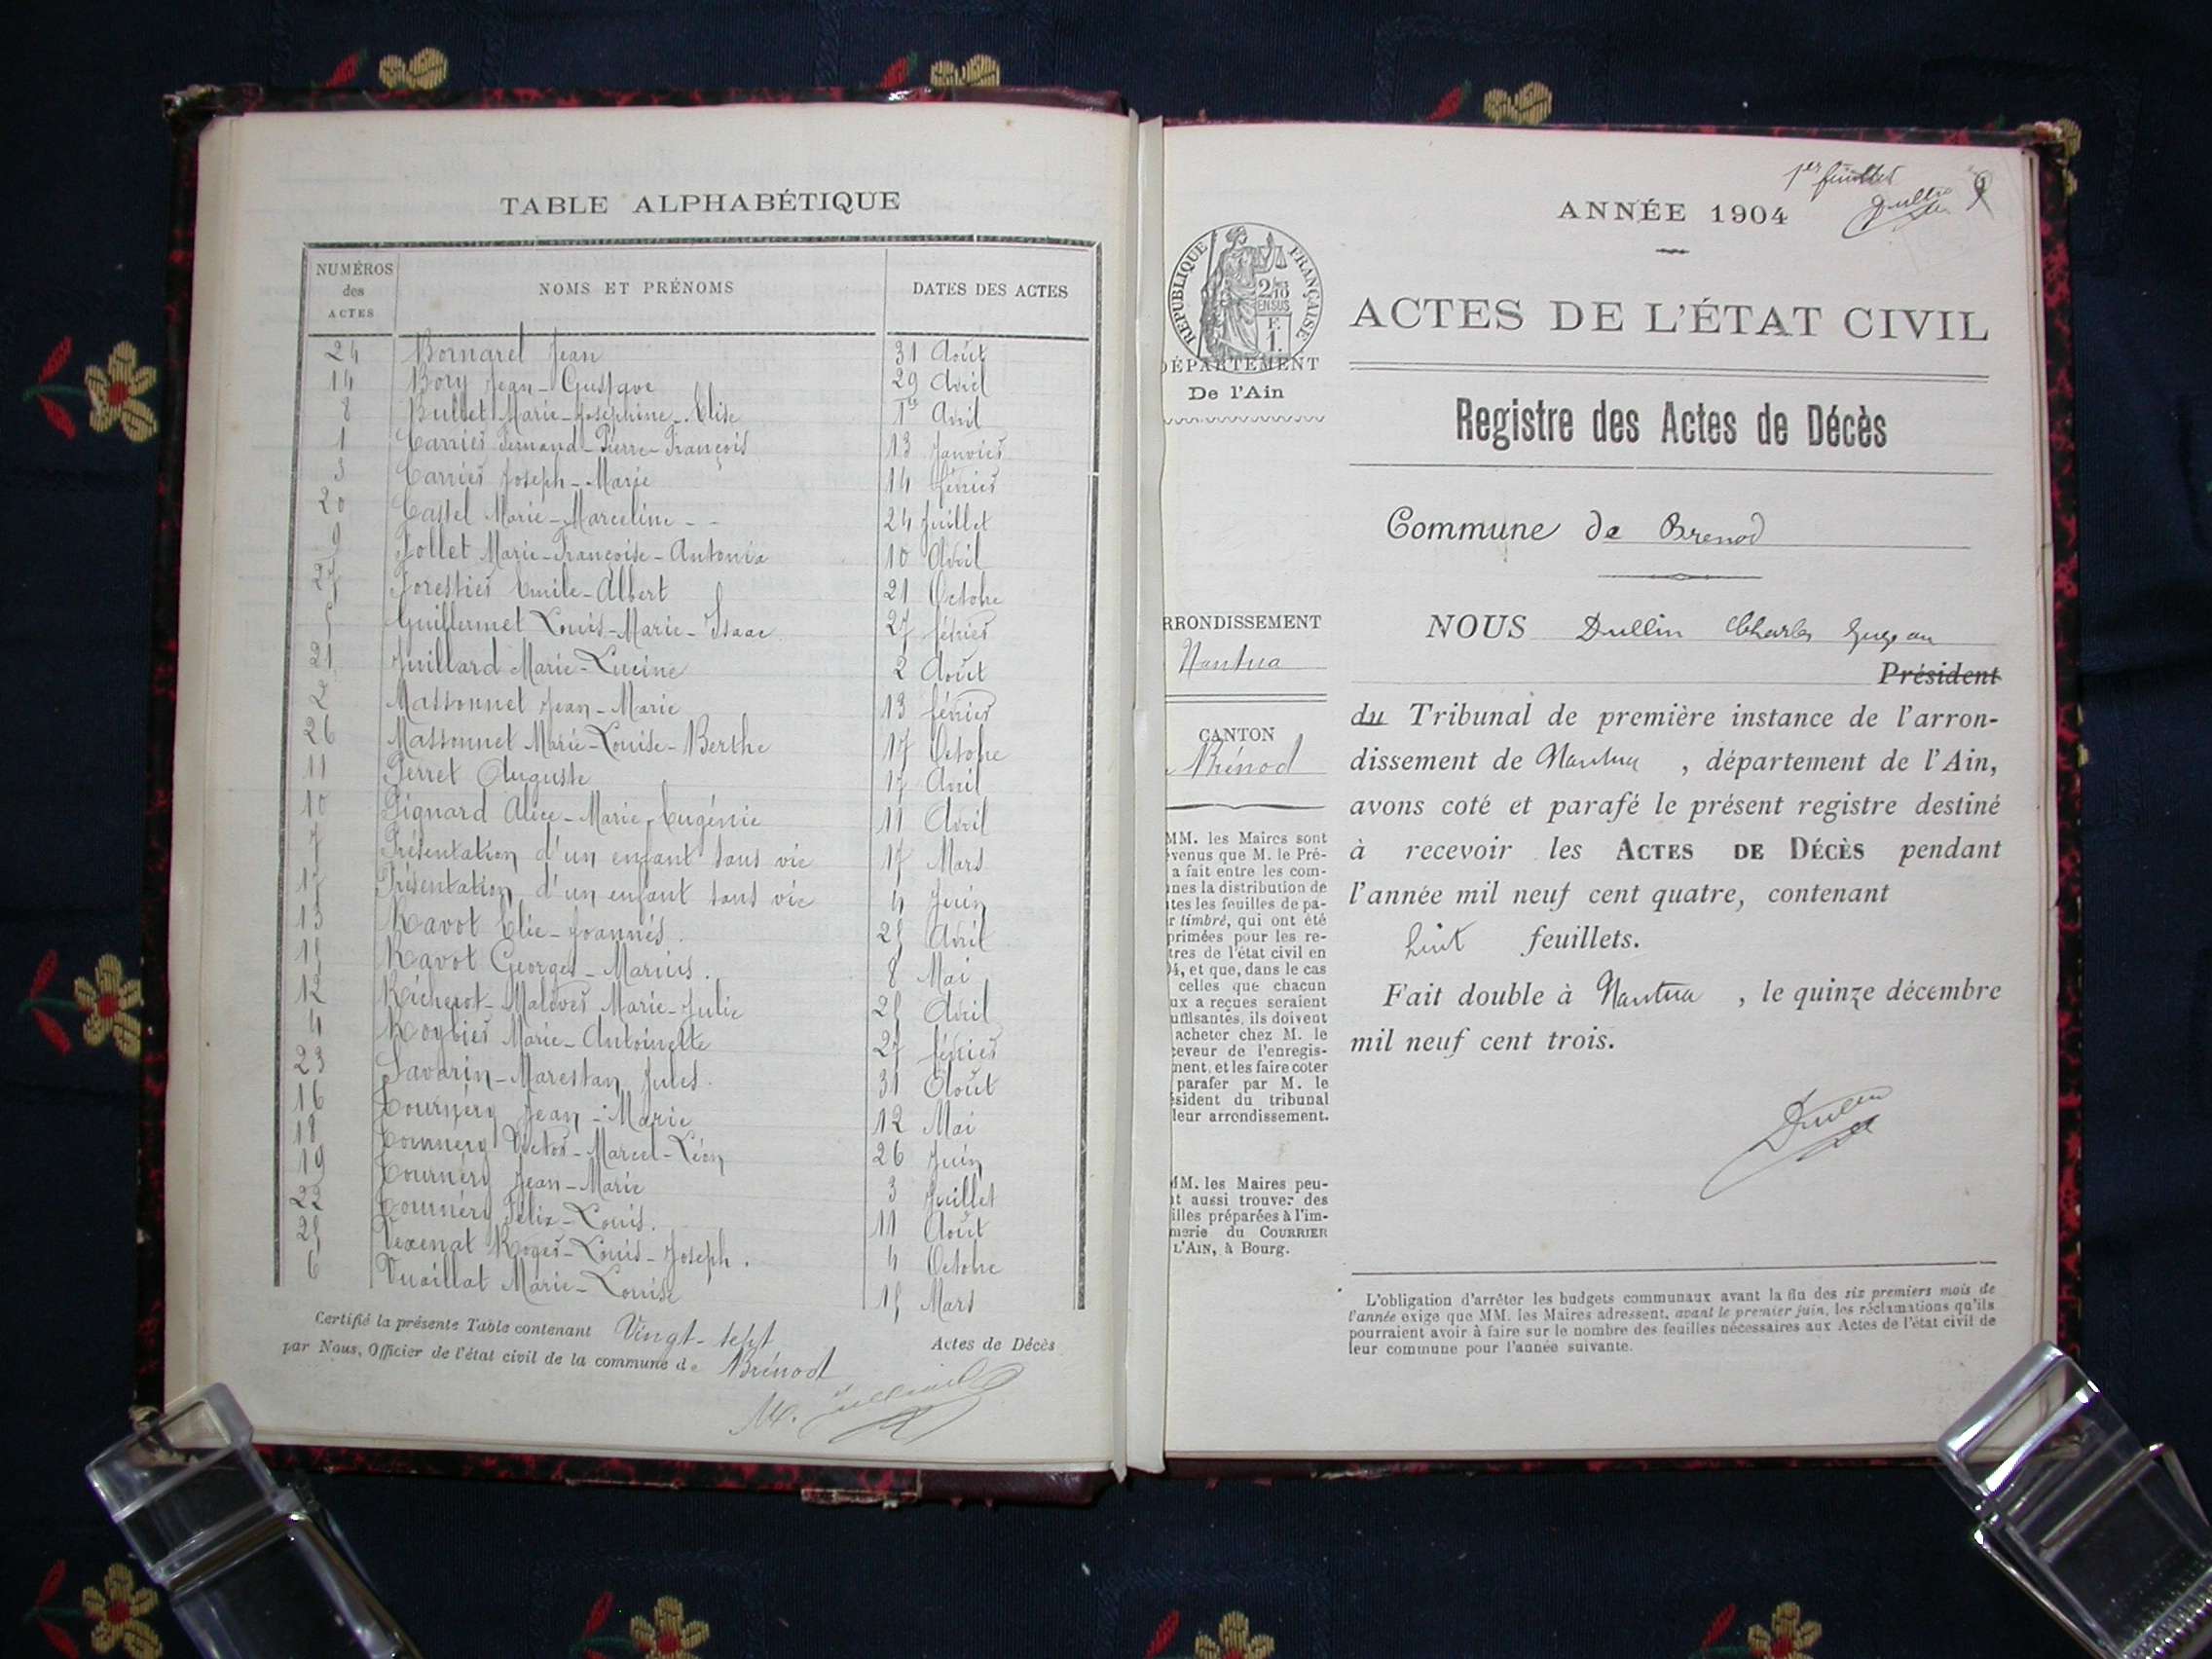 TABLE ALPHABÉTIQUE
NUMÉROS des ACTES NOMS ET PRÉNOMS DATES DES ACTES
24 Bornarel Jean 31 Août
14 Bory Jean-Gustave 29 Avril
8 Bullet Marie-Joséphine-Elise 1er Avril
1 Carrier Fernand-Pierre-François 13 Janvier
3 Carrier Joseph-Marie 14 février
20 Castel Marie-Marceline - - 24 Juillet
9 Follet Marie-Françoise-Antonia 10 Avril
27 Forestier Emile-Albert 21 Octobre
5 Guillermet Louis-Marie-Isaac 27 février
21 Juillard Marie-Lucine 2 Août
2 Massonnet Jean-Marie 13 février
26 Massonnet Marie-Louise-Berthe 17 Octobre
11 Perret Auguste 17 Avril
10 Pignard Alice-Marie-Eugénie 11 Avril
7 Présentation d'un enfant sans vie 17 Mars
17 Présentation d'un enfant sans vie 4 Juin
13 Ravot Elie-Joannès. 25 Avril
15 Ravot Georges-Marius. 8 Mai
12 Richerot- Marie-Julie 25 Avril
4 Roybier Marie-Antoinette 27 février
23 Savarin-Marestan Jules. 31 Août
16 Tournéry Jean-Marie 12 Mai
18 Tournéry Victor-Marcel-Léon 26 Juin
19 Tournéry Jean-Marie 3 Juillet
22 Tournéry Félix-Louis. 11 Août
25 Vexenat Roger-Louis-Joseph. 4 Octobre
6 Vuaillat Marie-Louise 15 Mars
Certifié la présente Table contenant Vingt-sept Actes de Décès
par Nous, Officier de l'état civil de la commune de Brénod
1er feuillet
Dullin
ANNÉE 1904
RÉPUBLIQUE FRANÇAISE
2/10 EN SUS
F. 1.
ACTES DE L'ÉTAT CIVIL
DÉPARTEMENT
De l'Ain
Registre des Actes de Décès
Commune de Brenod
RRONDISSEMENT
Nantua
CANTON
Brénod
MM. les Maires sont
venus que M. le Pré-
a fait entre les com-
nes la distribution de
tes les feuilles de pa-
r timbré, qui ont été
primées pour les re-
tres de l'état civil en
4, et que, dans le cas
celles que chacun
ux a reçues seraient
uffisantes, ils doivent
acheter chez M. le
ceveur de l'enregis-
ment, et les faire coter
parafer par M. le
sident du tribunal
leur arrondissement.
MM. les Maires peu-
t aussi trouver des
illes préparées à l'im-
merie du COURRIER
L'AIN, à Bourg.
NOUS Dullin Charles
Président
du Tribunal de première instance de l'arron-
dissement de Nantua, département de l'Ain,
avons coté et parafé le présent registre destiné
à recevoir les ACTES DE DÉCÈS pendant
l'année mil neuf cent quatre, contenant
huit feuillets.
Fait double à Nantua, le quinze décembre
mil neuf cent trois.
Dullin
L'obligation d'arrêter les budgets communaux avant la fin des six premiers mois de
l'année exige que MM. les Maires adressent, avant le premier juin, les réclamations qu'ils
pourraient avoir à faire sur le nombre des feuilles nécessaires aux Actes de l'état civil de
leur commune pour l'année suivante.